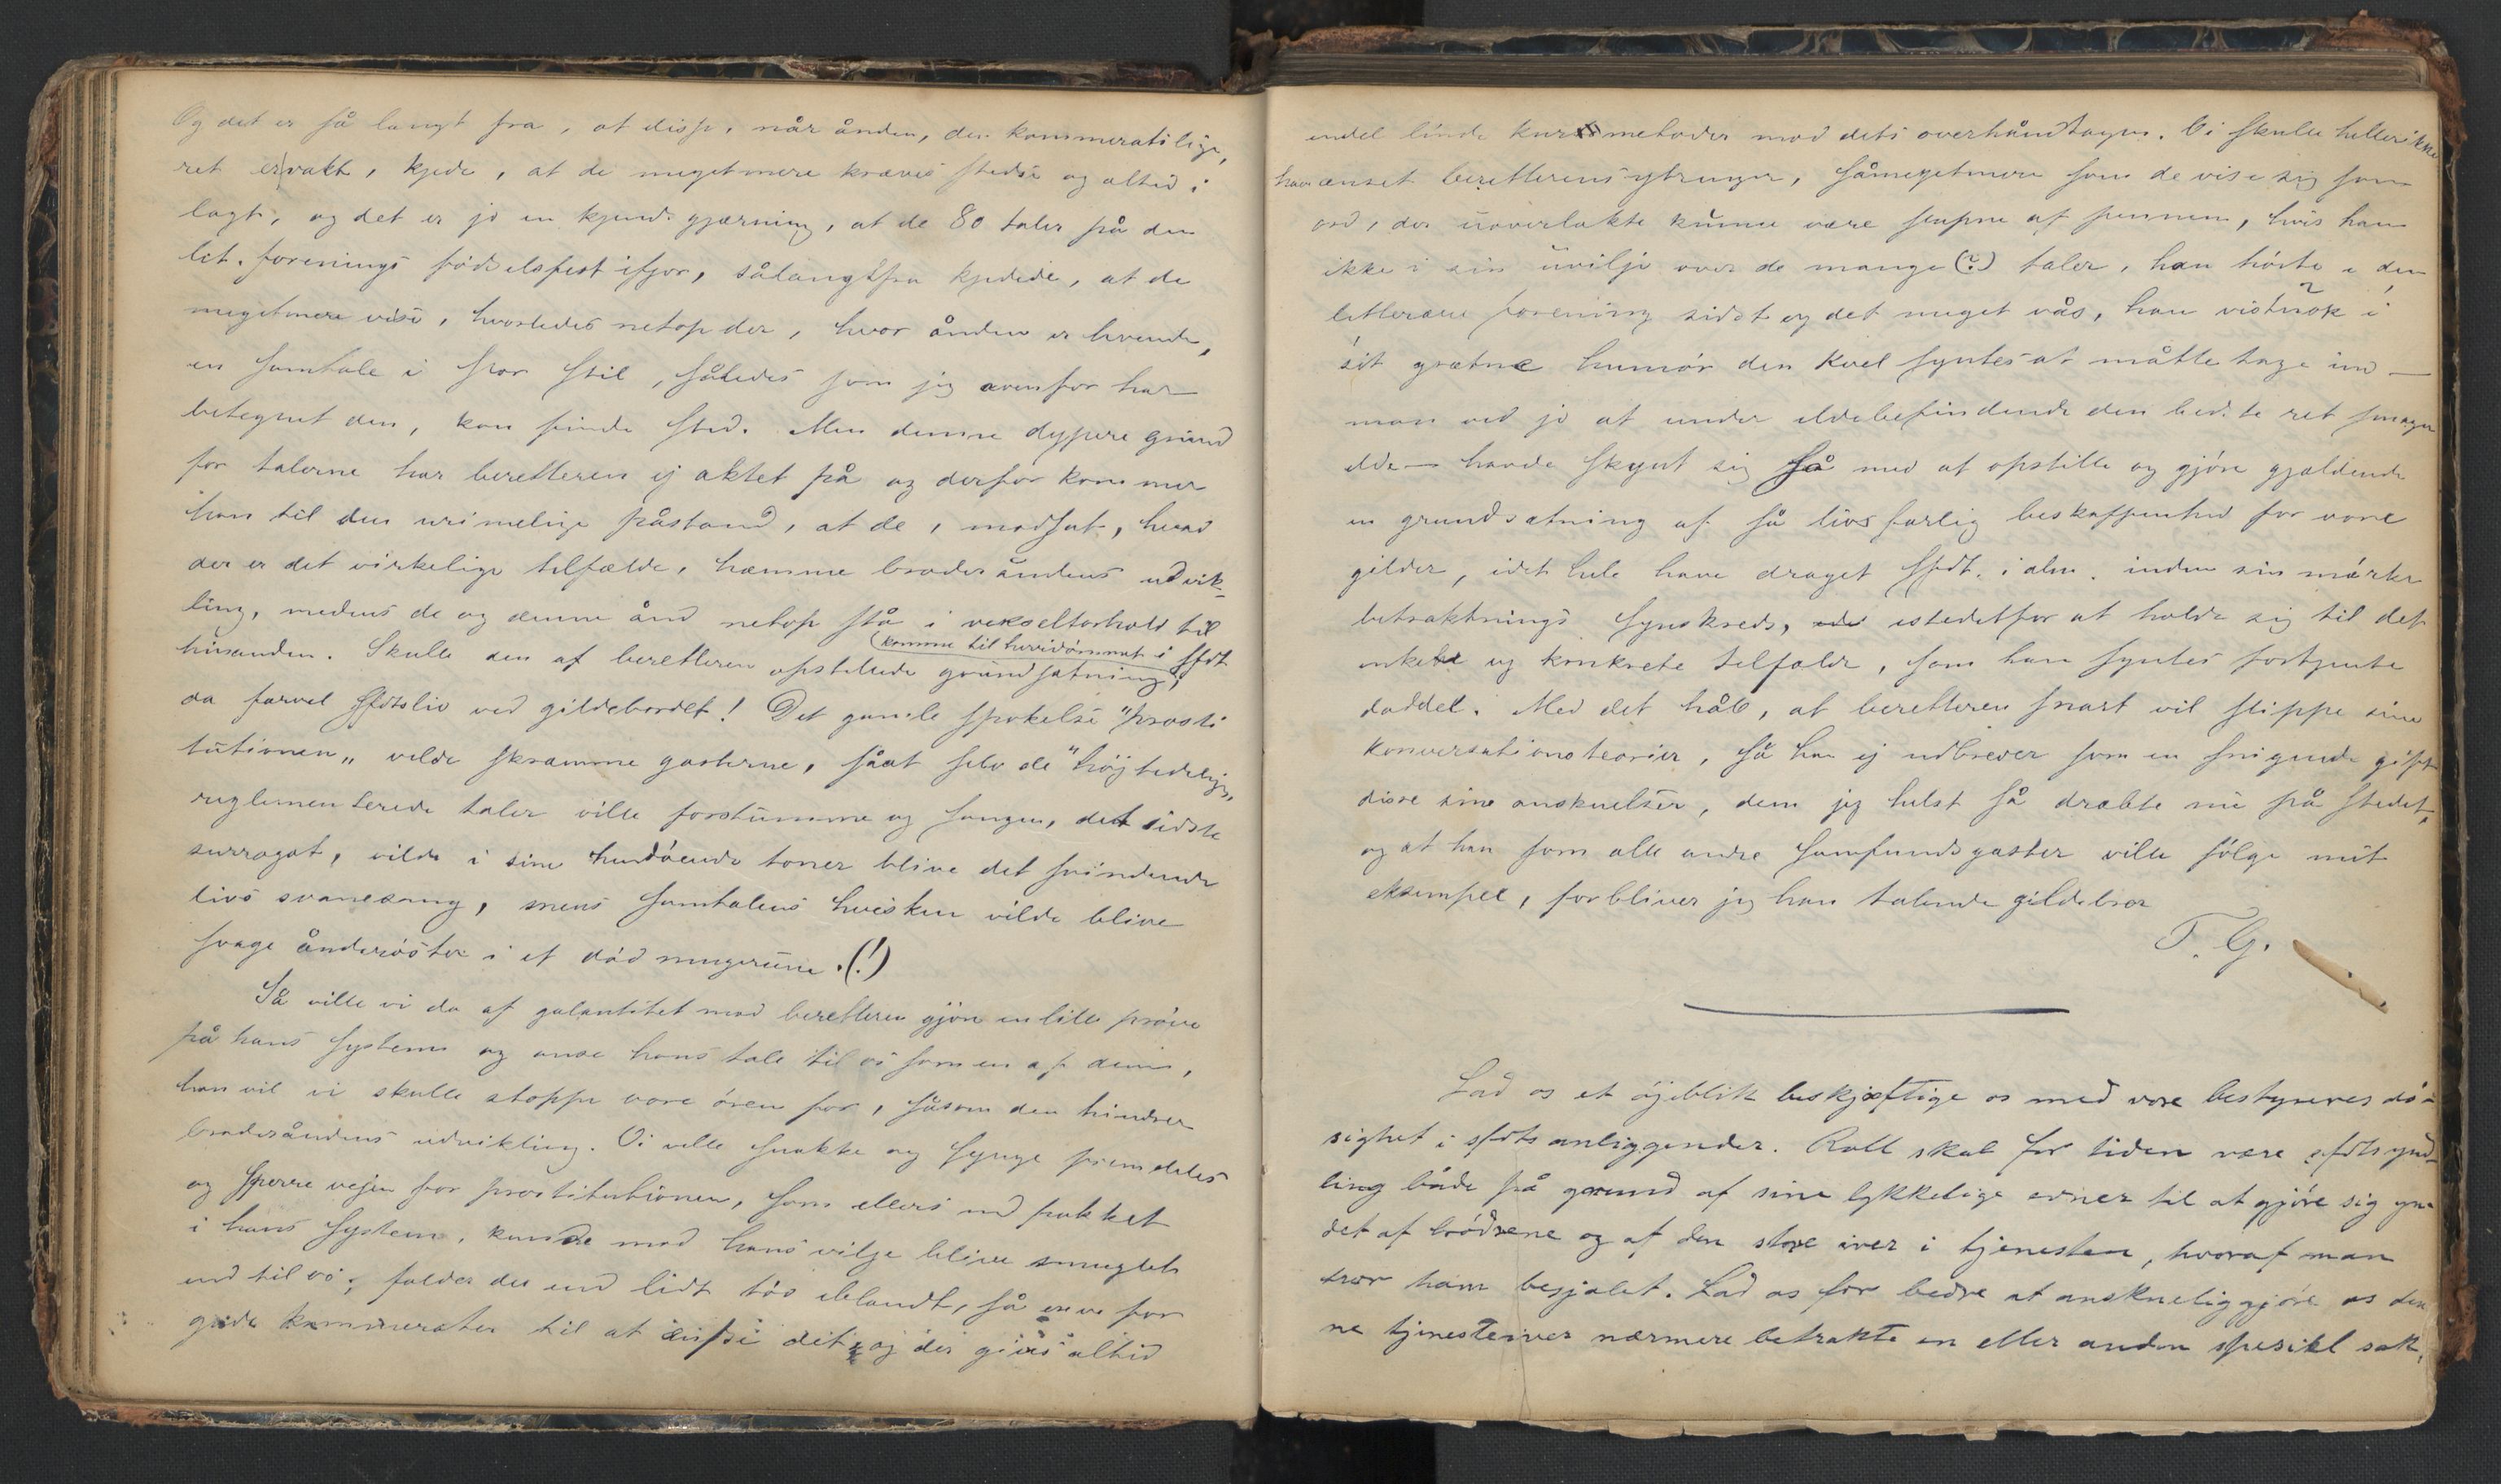 Og det er så langt fra, at disse, når ånden, den kammeratslige,
ret er vakt, kjede, at de megetmere kræves stedse og altid i
lagt, og det er jo en kjendsgjærning, at de 80 taler på den
lit. forenings fødselsfest ifjor, sålangtfra kjedede, at de
megetmere viste, hvorledes netop der, hvor ånden er levende,
en samtale i stor stil, således som jeg ovenfor har
betegnet den, kan finde sted. Men denne dypere grund
for talerne har beretteren ej aktet på og derfor kommer
han til den urimelige påstand, at de, modsat, hvad
der er det virkelige tilfælde, hæmme broderåndens udvik-
ling, medens de og denne ånd netop stå i vekselforhold til
hinanden. Skulle den af beretteren opstillede grundsætning, komme til herredømmet i sfdt
da farvel sfdtsliv ved gildebordet! Det gamle spøkelse "prosti
tutionen" vilde skræmme gasterne, såat selv de "højtidelige,
reglementerede taler ville forstumme og sangen, det sidste
surrogat, vilde i sine hendøende toner blive det svindende
livs svanesang, mens samtalens hvisken vilde blive
svage åndestøster i et død
Så ville vi da af galantitet mod beretteren gjøre en lille prøve
på hans system og anse hans tale til os som en af dem,
han vil vi skulle stoppe vore ören for, såsom den hindrer
broderåndens udvikling. Vi ville snakke og synge fremdeles
og sperre vejen for prostitutionen, som ellers ind pakket
i hans system, kunde mod hans vilje blive smuglet
ind til os; falder der end lidt vås iblandt, så ere vi for
gode kammerater til at ænse det og der gives altid
endel linde kurmetoder mod dets overhåndtagen. Vi skulle heller ikke
have ænset beretterens ytringer, såmegetmere som de vise sig som
ord, der uoverlakte kunne være slupne af pennen, hvis han
ikke i sin uvilje over de mange (?) taler, han hørte i den
litterære forening sidst og det meget vås, han vistnok i
sit grætne humör den kvel syntes at måtte tage ind —
man ved jo at under ildebefindende den bedste ret smager
ilde — havde skyndt sig så med at opstille og gjøre gjældende
en grundsætning af så livsfarlig beskaffenhed for vore
gilder, idethele have draget sfdt. i alm. inden sin mørke
betraktnings synskreds, istedetfor at holde sig til det
enkelte og konkrete tilfælde, som han syntes fortjente
daddel. Med det håb, at beretteren snart vil slippe sine
konversationsteorier, så han ej udbreder som en snigende gift
disse sine anskuelser, dem jeg helst så dræbte nu på stedet,
og at han som alle andre samfundsgaster ville følge mit
eksempel, forbliver jeg hans talende gildebror
T. G.
Lad os et øjeblik beskjæftige os med vore bestyreres
sighet i sfdts anliggender. Roll skal for tiden være sfdts ynd-
ling både på grund af sine lykkelige evner til at gjøre sig yn-
det af brødrene og af den store iver i tjenesten, hvoraf man
tror ham besjælet. Lad os for bedre at anskueliggjøre os den
ne tjenesteiver nærmere betrakte en eller anden spesiel sak,